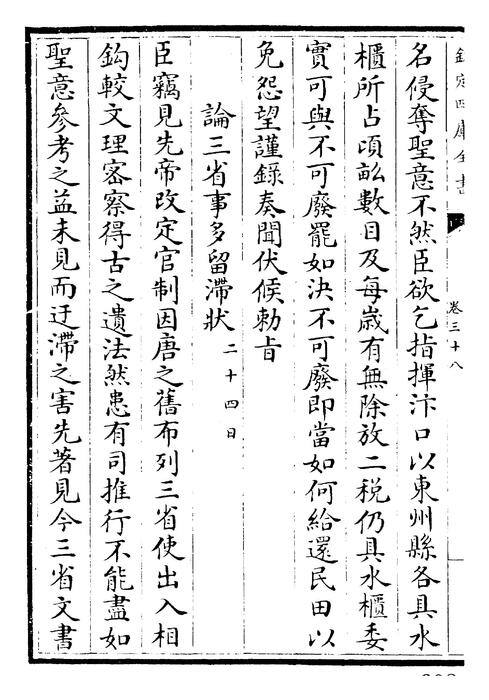 欽定四庫全書
卷三十八
名侵奪聖意不然臣欲乞指揮汴口以東州縣各具水
櫃所占頃畝數目及每歲有無除放二稅仍具水櫃委
實可與不可廢罷如決不可廢即當如何給還民田以
免怨望謹錄奏聞伏候勅旨
論三省事多留滯狀二十四日
臣竊見先帝改定官制因唐之舊布列三省使出入相
鈎較文理密察得古之遺法然患有司推行不能盡如
聖意參考之益未見而迂滯之害先著見今三省文書